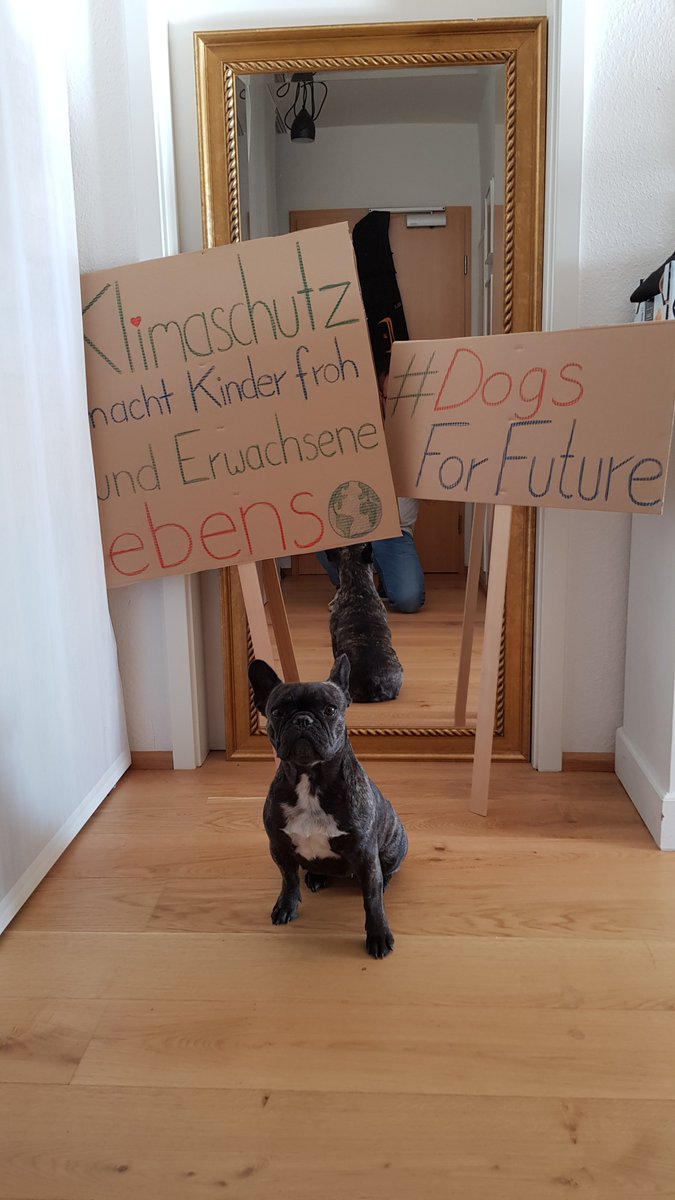 Klimaschutz
macht Kinder froh
und Erwachsene
ebens
#Dogs
For Future